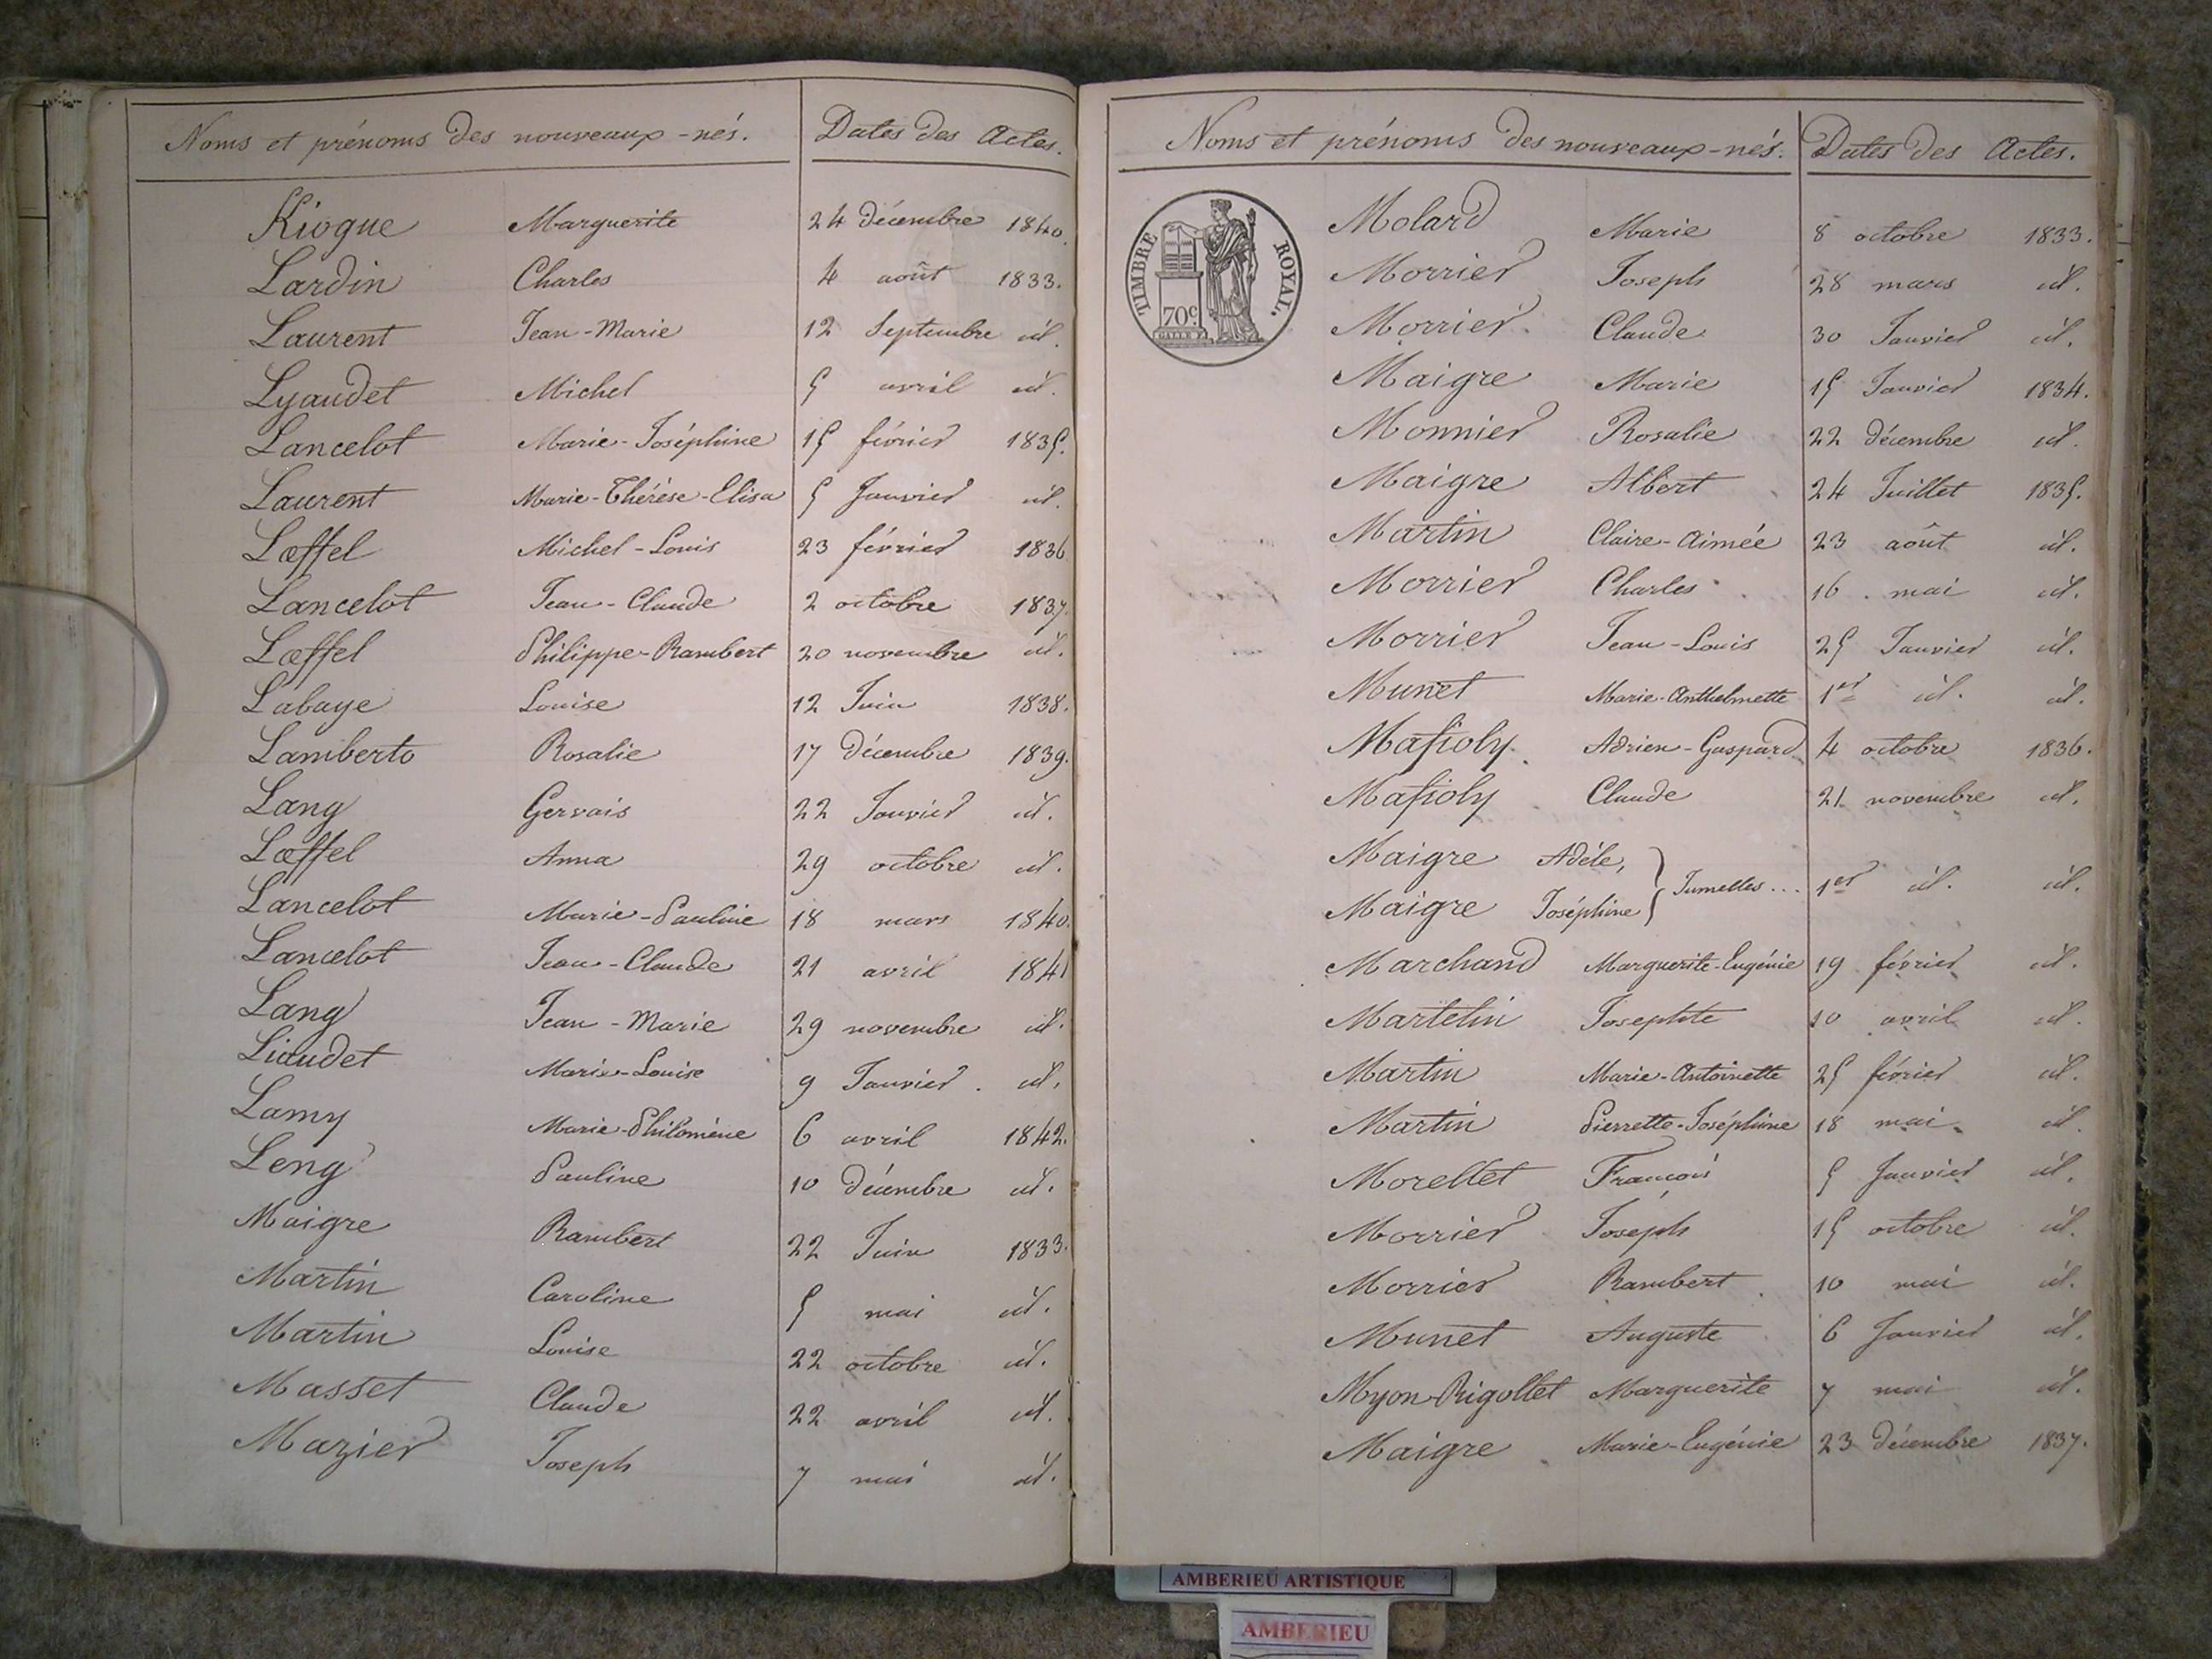 Noms et prénoms des nouveaux-nés. Dates des Actes.
Kiogue Marguerite 24 décembre 1840.
Lardin Charles 4 août 1833.
Laurent Jean-Marie 12 Septembre id.
Lyaudet Michel 5 avril id.
Lancelot Marie-Joséphine 15 février 1835.
Laurent Marie-Thérèse-Elisa 5 Janvier id.
Lœffel Michel-Louis 23 février 1836
Lancelot Jean-Claude 2 octobre 1837.
Lœffel Philippe-Rambert 20 novembre id.
Labaye Louise 12 Juin 1838.
Lamberto Rosalie 17 décembre 1839.
Lang Gervais 22 Janvier id.
Lœffel Anna 29 octobre id.
Lancelot Marie-Pauline 18 mars 1840.
Lancelot Jean-Claude 21 avril 1841
Lang Jean-Marie 29 novembre id.
Liaudet Marie-Louise 9 Janvier. id.
Lamy Marie-Philomène 6 avril 1842.
Leng Pauline 10 décembre id.
Maigre Rambert 22 Juin 1833.
Martin Caroline 5 mai id.
Martin Louise 22 octobre id.
Masset Claude 22 avril id.
Mazier Joseph 7 mai id.
Noms et prénoms des nouveaux-nés. Dates des Actes.
TIMBRE ROYAL.
70c.
Molard Marie 8 octobre 1833.
Morrier Joseph 28 mars id.
Morrier Claude 30 Janvier id.
Maigre Marie 15 Janvier 1834.
Monnier Rosalie 22 décembre id.
Maigre Albert 24 Juillet 1835.
Martin Claire-Aimée 23 août id.
Morrier Charles 16 mai id.
Morrier Jean-Louis 25 Janvier id.
Munet Marie-Anthelmette 1er id. id.
Maſioly Adrien-Gaspard 4 octobre 1836.
Maſioly Claude 21 novembre id.
Maigre Adèle,
Maigre Joséphine } Jumelles... 1er id. id.
Marchand Marguerite-Eugénie 19 février id.
Martelin Josephte 10 avril id.
Martin Marie-Antoinette 25 février id.
Martin Pierrette-Joséphine 18 mai id.
Morellet François 5 Janvier id.
Morrier Joseph 15 octobre id.
Morrier Rambert 10 mai id.
Munet Auguste 6 Janvier id.
Myon-Rigollet Marguerite 7 mai id.
Maigre Marie-Eugénie 23 décembre 1837.
AMBERIEU ARTISTIQUE
AMBERIEU